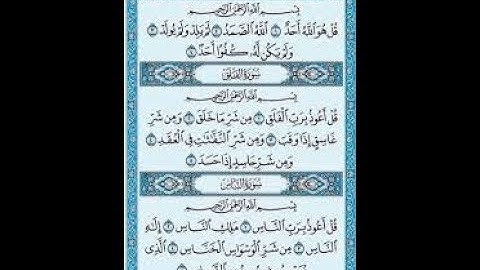 بِسْمِ اللَّهِ الرَّحْمَٰنِ الرَّحِيمِ
قُلْ هُوَ اللَّهُ أَحَدٌ ١ اللَّهُ الصَّمَدُ ٢ لَمْ يَلِدْ وَلَمْ يُولَدْ ٣
وَلَمْ يَكُن لَّهُ كُفُوًا أَحَدٌ ٤
سُورَةُ الفَلَقِ
بِسْمِ اللَّهِ الرَّحْمَٰنِ الرَّحِيمِ
قُلْ أَعُوذُ بِرَبِّ الْفَلَقِ ١ مِن شَرِّ مَا خَلَقَ ٢ وَمِن شَرِّ
غَاسِقٍ إِذَا وَقَبَ ٣ وَمِن شَرِّ النَّفَّاثَاتِ فِي الْعُقَدِ ٤
وَمِن شَرِّ حَاسِدٍ إِذَا حَسَدَ ٥
سُورَةُ النَّاسِ
بِسْمِ اللَّهِ الرَّحْمَٰنِ الرَّحِيمِ
قُلْ أَعُوذُ بِرَبِّ النَّاسِ ١ مَلِكِ النَّاسِ ٢ إِلَٰهِ
النَّاسِ ٣ مِن شَرِّ الْوَسْوَاسِ الْخَنَّاسِ ٤ الَّذِي